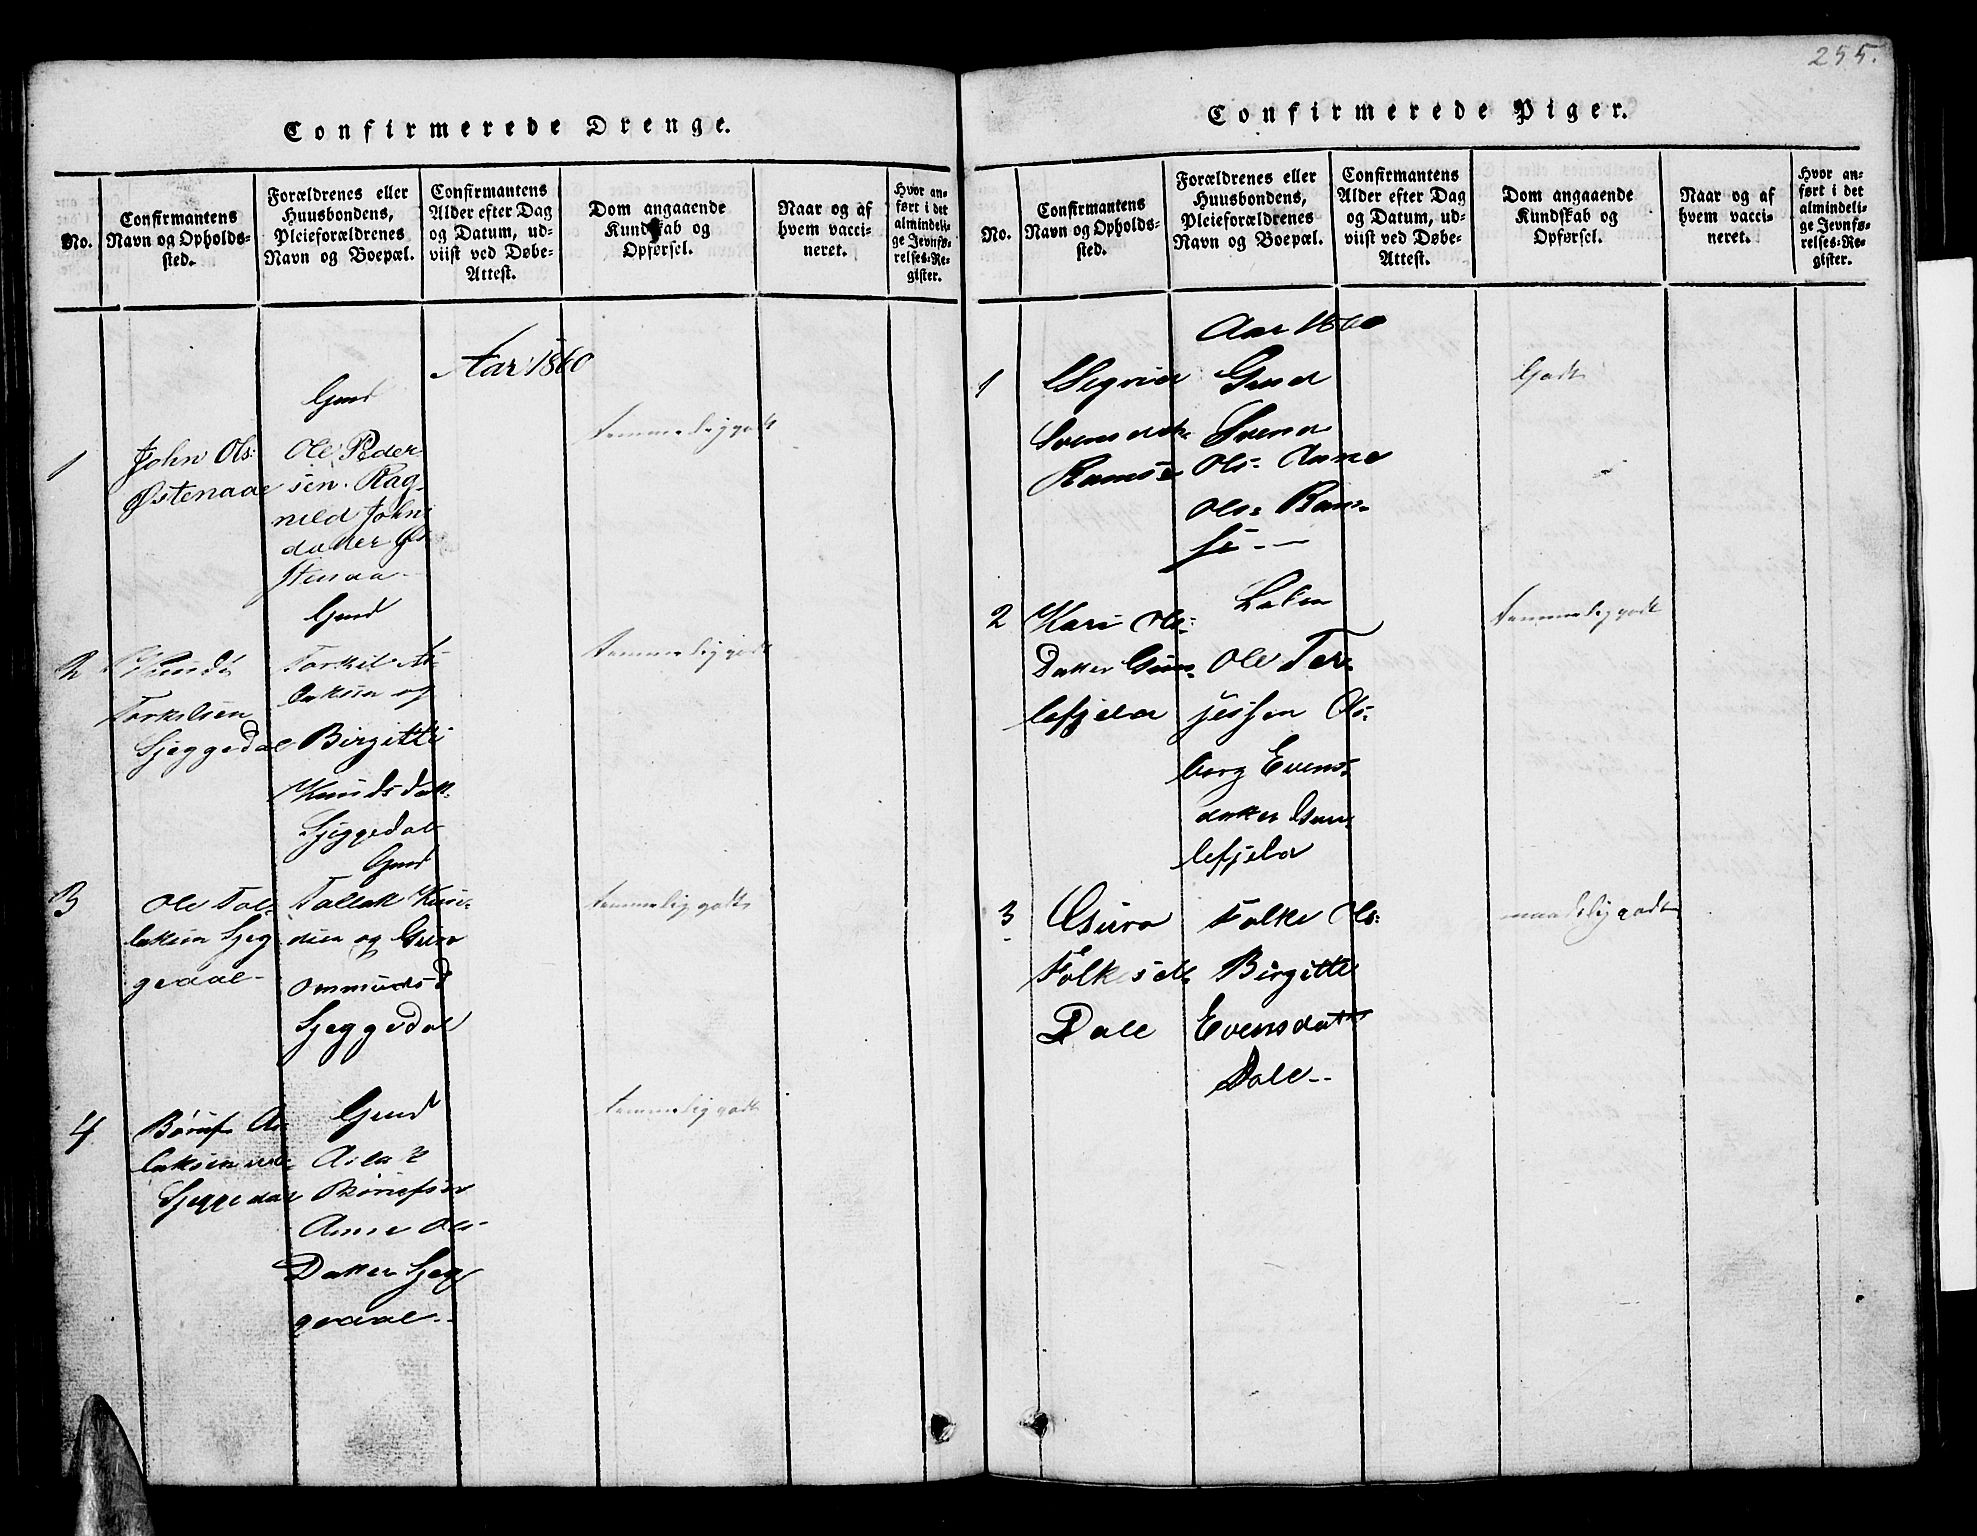 Confirmerede Drenge.
No.
Confirmantens
Navn og Opholds-
sted.
Forældrenes eller
Huusbondens,
Pleieforældrenes
Navn og Boepæl.
Confirmantens
Alder efter Dag
og Datum, ud-
viist ved Døbe-
Attest.
Dom angaaende
Kundskab og
Opførsel.
Naar og af
hvem vacci-
neret.
Hvor an-
ført i det
almindeli-
ge Jevnfø-
relses-Re-
gister.
Aar 1860
1
John Ols:
Østenaae
Gmd
Ole Peder
sen. Rag-
nild John
datter Øs
stenaa
temmelig godt
2
Knud
Torkelsen
Sjeggedal
Gmd
Torkil As-
laksen og
Birgitte
Knudsdatt.
Sjeggedal
temmelig godt
3
Ole Tal-
laksen Sjeg
gedal
Gmd
Tallak Knu-
dsen og Guro
Ommundsd
Sjeggedal
temmelig godt
4
Børuf As
laksen
Sjeggedal
Gmd
Aslak
Børufsen
Anne Ols
Datter Sjeg
gedal
temmelig godt
255.
Confirmerede Piger.
No.
Confirmantens
Navn og Opholds-
sted.
Forældrenes eller
Huusbondens,
Pleieforældrenes
Navn og Boepæl.
Confirmantens
Alder efter Dag
og Datum, ud-
viist ved Døbe-
Attest.
Dom angaaende
Kundskab og
Opførsel.
Naar og af
hvem vacci-
neret.
Hvor an-
ført i det
almindeli-
ge Jevnfø-
relses-Re-
gister.
Aar 1860
1
Sigrid
Svensdatt.
Ramse
Gmd
Svend
Ols- Anne
Ols- Ram-
se
Godt
2
Kari Ols-
Datter Gun-
lefjeld
Ole Ter-
jessen As-
berg Evens-
datter Gun-
lefjeld
temmelig godt
3
Guro
Folkesdt.
Dale
Folke Ols:
Birgitte
Evensdatt
Dale
maadelig godt